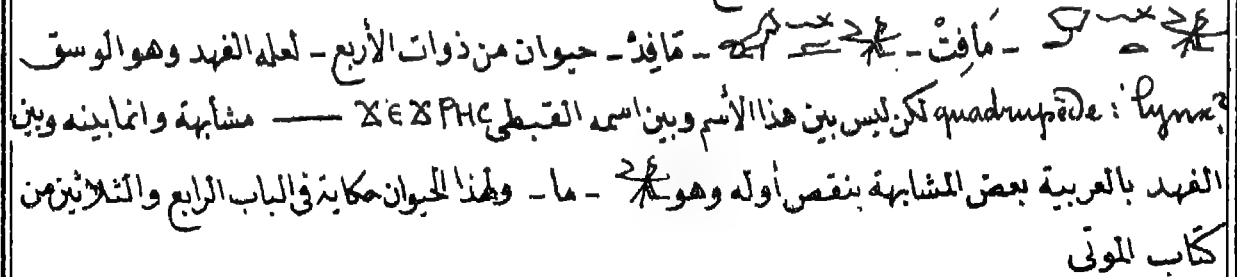 - مَافِتْ - - مَافِدْ - حيوان من ذوات الأربع - لعله الفهد وهو الوسق
quadrupède : lynx? لكن ليس بين هذا الأسم وبين اسمه القبطى ⲬⲈⲬⲢⲎⲤ — مشابهة وانما بينه وبين
الفهد بالعربية بعض المشابهة بنقص أوله وهو - ما - ولهذا الحيوان حكاية فى الباب الرابع والثلاثين من
كتاب الموتى